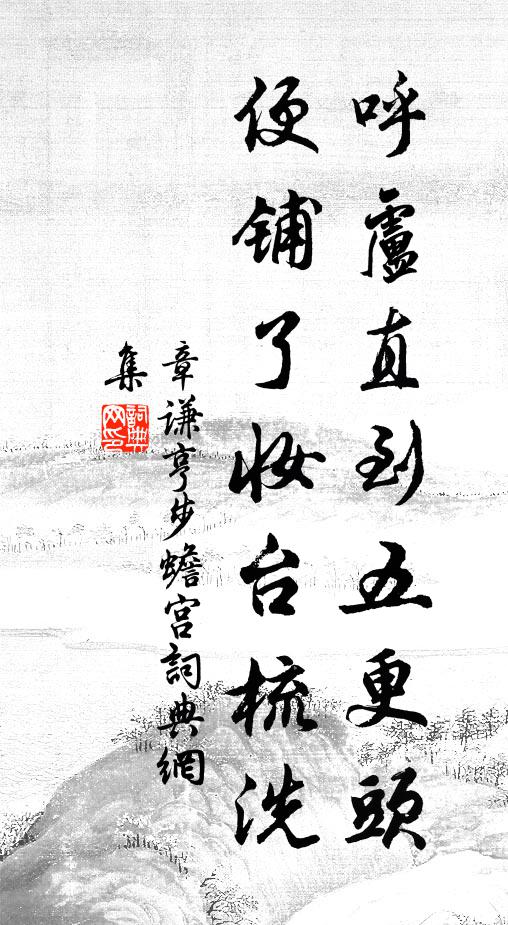 呼盧直到五更頭
便鋪了妝台梳洗
章謙亨步蟾宮詞典網
集
詞典
网印